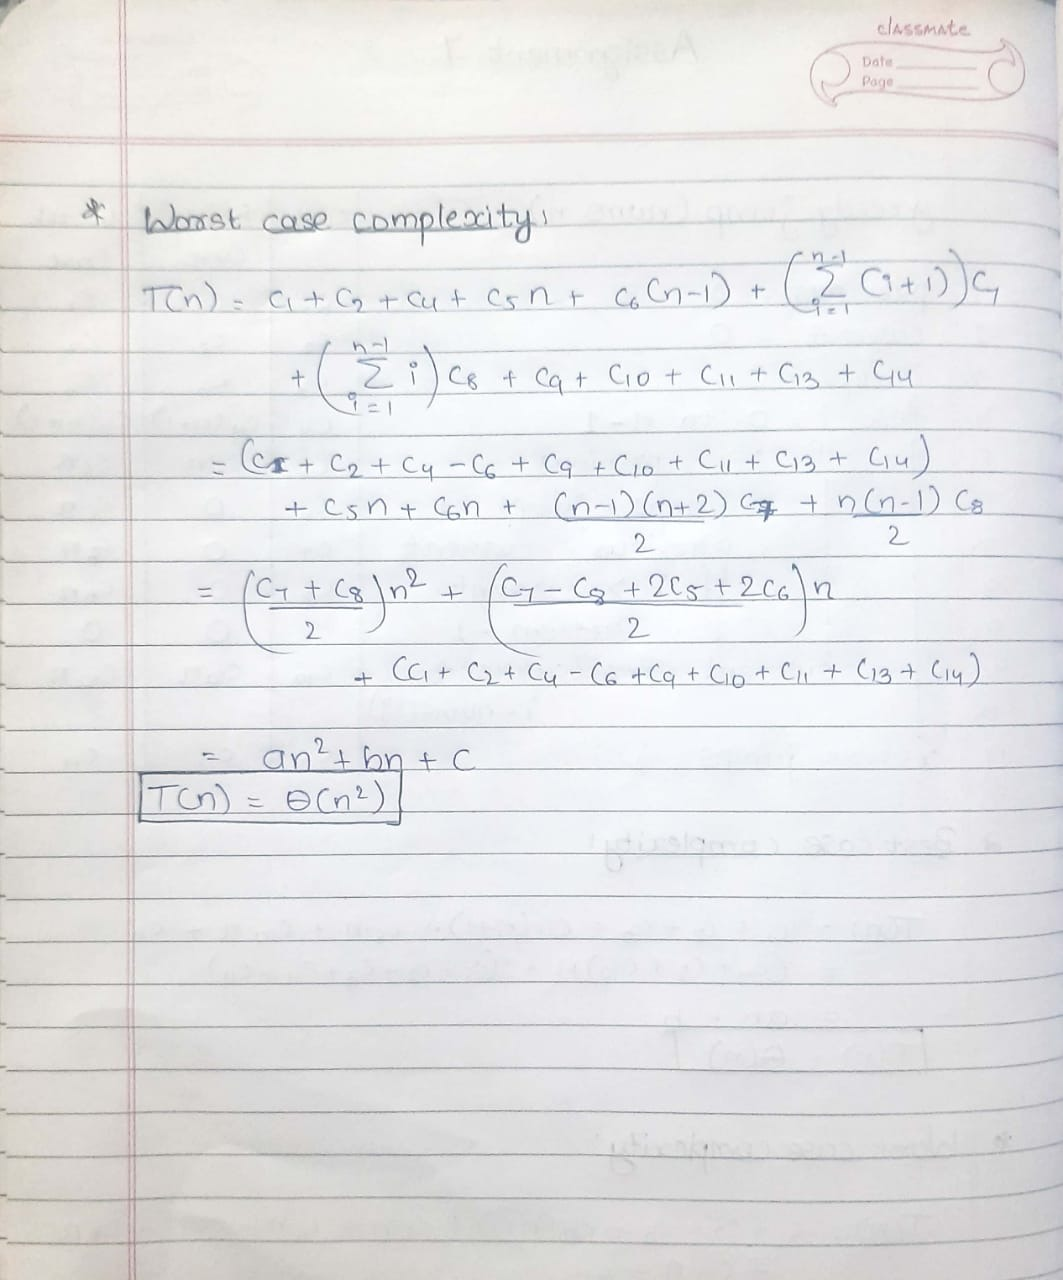 classmate
Date
Page
* Worst case complexity:
T(n) = C1 + C2 + C4 + C5 n + C6 (n-1) + (∑_{i=1}^{n-1} (i+1)) C7
+ (∑_{i=1}^{n-1} i) C8 + C9 + C10 + C11 + C13 + C14
= (C1 + C2 + C4 - C6 + C9 + C10 + C11 + C13 + C14)
+ C5n + C6n + (n-1)(n+2)/2 C7 + n(n-1)/2 C8
= ((C7 + C8)/2) n² + ((C7 - C8 + 2C5 + 2C6)/2) n
+ (C1 + C2 + C4 - C6 + C9 + C10 + C11 + C13 + C14)
= an² + bn + C
T(n) = Θ(n²)